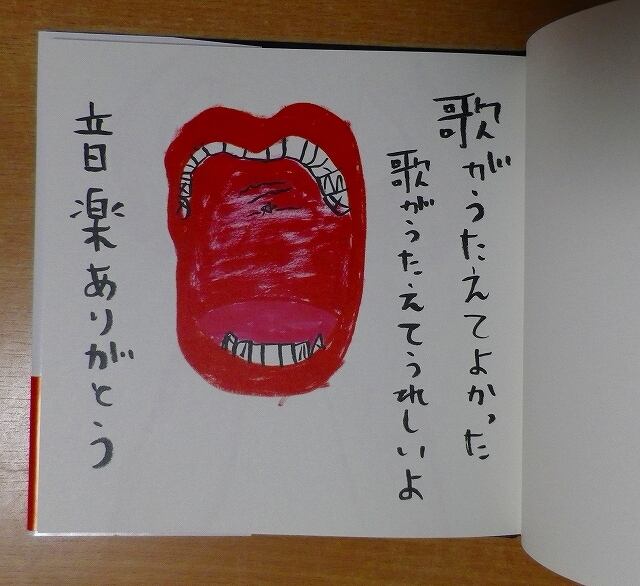 歌がうたえてよかった
歌がうたえてうれしいよ
音楽ありがとう